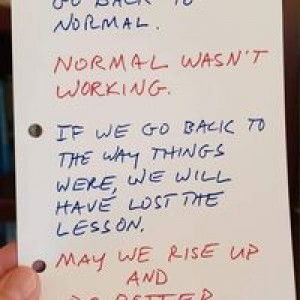 GO BACK TO
NORMAL.
NORMAL WASN'T
WORKING.
IF WE GO BACK TO
THE WAY THINGS
WERE, WE WILL
HAVE LOST THE
LESSON.
MAY WE RISE UP
AND
DO BETTER